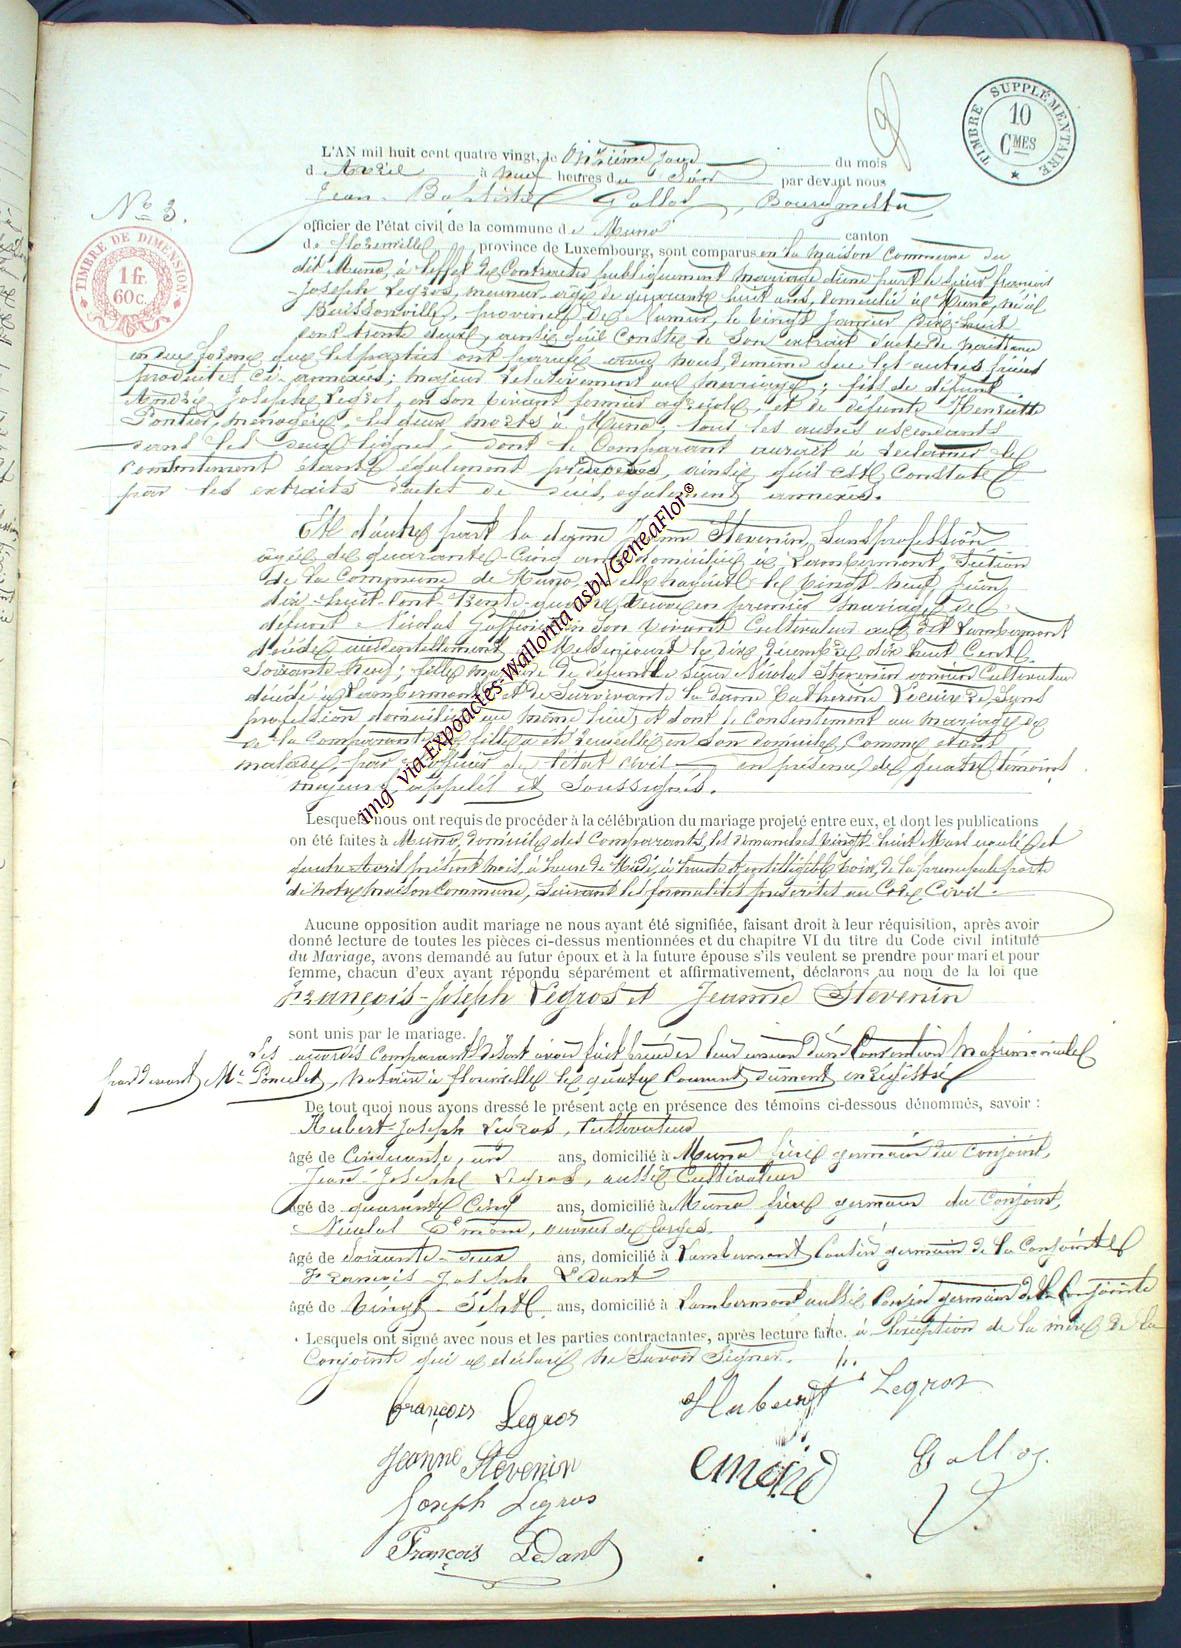 TIMBRE SUPPLÉMENTAIRE
10
CMES
L'AN mil huit cent quatre vingt, le onzième jour du mois
d'Avril à neuf heures du Soir par devant nous
Jean-Baptiste Gallos, Bourgmestre
No 3.
TIMBRE DE DIMENSION
1 fr.
60c.
officier de l'état civil de la commune de Muno canton
de Florenville, province de Luxembourg, sont comparus en la maison Commune du
dit Muno, à l'effet de Contracter publiquement mariage d'une part le Sieur françois
Joseph Legros, meunier, âgé de quarante huit ans, domicilié à Muno, né à
Buissonville, province De Namur, le vingt Janvier Dix-huit
cent trente deux, ainsi qu'il Conste de Son extrait d'acte de naissance
en due forme, que les parties ont devant nous, de même que les autres pièces
produites ci-annexées; majeur relativement au mariage; fils de défunt
André Joseph Legros, en son vivant fermier agricole, et de défunte Henriette
Pontus, ménagère, les deux morts à Muno; tous les autres ascendants
dans les deux lignes, dont le Comparant aurait à réclamer le
Consentement étant également prédécédés, ainsi qu'il est Constaté
par les extraits d'actes de décès, également annexés.
Et d'autre part la dame Jeanne Stevenin, Sans profession
âgée de quarante-Cinq ans domiciliée à Lambermont, Section
de la Commune de Muno, elle naquit le vingt neuf Juin
dix-huit-Cent-Trente-quatre, veuve en premier mariage de
défunt Nicolas en Son vivant Cultivateur au dit Lambermont
décédé accidentellement le dix décembre dix huit Cent
Soixante Neuf; fille majeure de défunt le Sieur Nicolas Stevenin Cultivateur
décédé à Lambermont et de Survivante la dame Catherine Sans
profession domiciliée au même lieu, et dont le Consentement au mariage de
de la Comparante Sa fille a été recueilli en Son domicile, Comme étant
malade, par officier de l'état civil en présence de quatre témoins
majeurs, appelés et Soussignés.
img via Expoactes-Wallonia asbl/GeneaFlor©
Lesquels nous ont requis de procéder à la célébration du mariage projeté entre eux, et dont les publications
on été faites à Muno, domicile des Comparants, les dimanches vingt huit Mars écoulé et
quatre Avril présent mois, à heure de Midi, à haute et intelligible voix, de la principale porte
de notre maison Commune, Suivant les formalités prescrites au Code Civil.
Aucune opposition audit mariage ne nous ayant été signifiée, faisant droit à leur réquisition, après avoir
donné lecture de toutes les pièces ci-dessus mentionnées et du chapitre VI du titre du Code civil intitulé
du Mariage, avons demandé au futur époux et à la future épouse s'ils veulent se prendre pour mari et pour
femme, chacun d'eux ayant répondu séparément et affirmativement, déclarons au nom de la loi que
François-Joseph Legros et Jeanne Stevenin
sont unis par le mariage.
Les accordés Comparants disent avoir fait précéder leur union d'une Convention Matrimoniale
par devant Me Poncelet, notaire à florenville le quatre Courant dûment enregistré
De tout quoi nous avons dressé le présent acte en présence des témoins ci-dessous dénommés, savoir :
Hubert-Joseph Legros, Cultivateur
âgé de Cinquante, un ans, domicilié à Muno frère germain du Conjoint,
Jean-Joseph Legros, aussi Cultivateur
âgé de quarante Cinq ans, domicilié à Muno frère germain du Conjoint,
Nicolas Emond, ouvrier de forges,
âgé de Soixante-deux ans, domicilié à Lambermont Cousin germain de la Conjointe
François-Joseph Ledant
âgé de Vingt-Sept ans, domicilié à Lambermont aussi Cousin germain de la Conjointe
Lesquels ont signé avec nous et les parties contractantes, après lecture faite. à l'exception de la mère de la
Conjointe qui a déclaré ne Savoir Signer.
françois Legros
h. Hubert Legros
Jeanne Stévenin
Emond
Gallos.
Joseph Legros
François Ledant